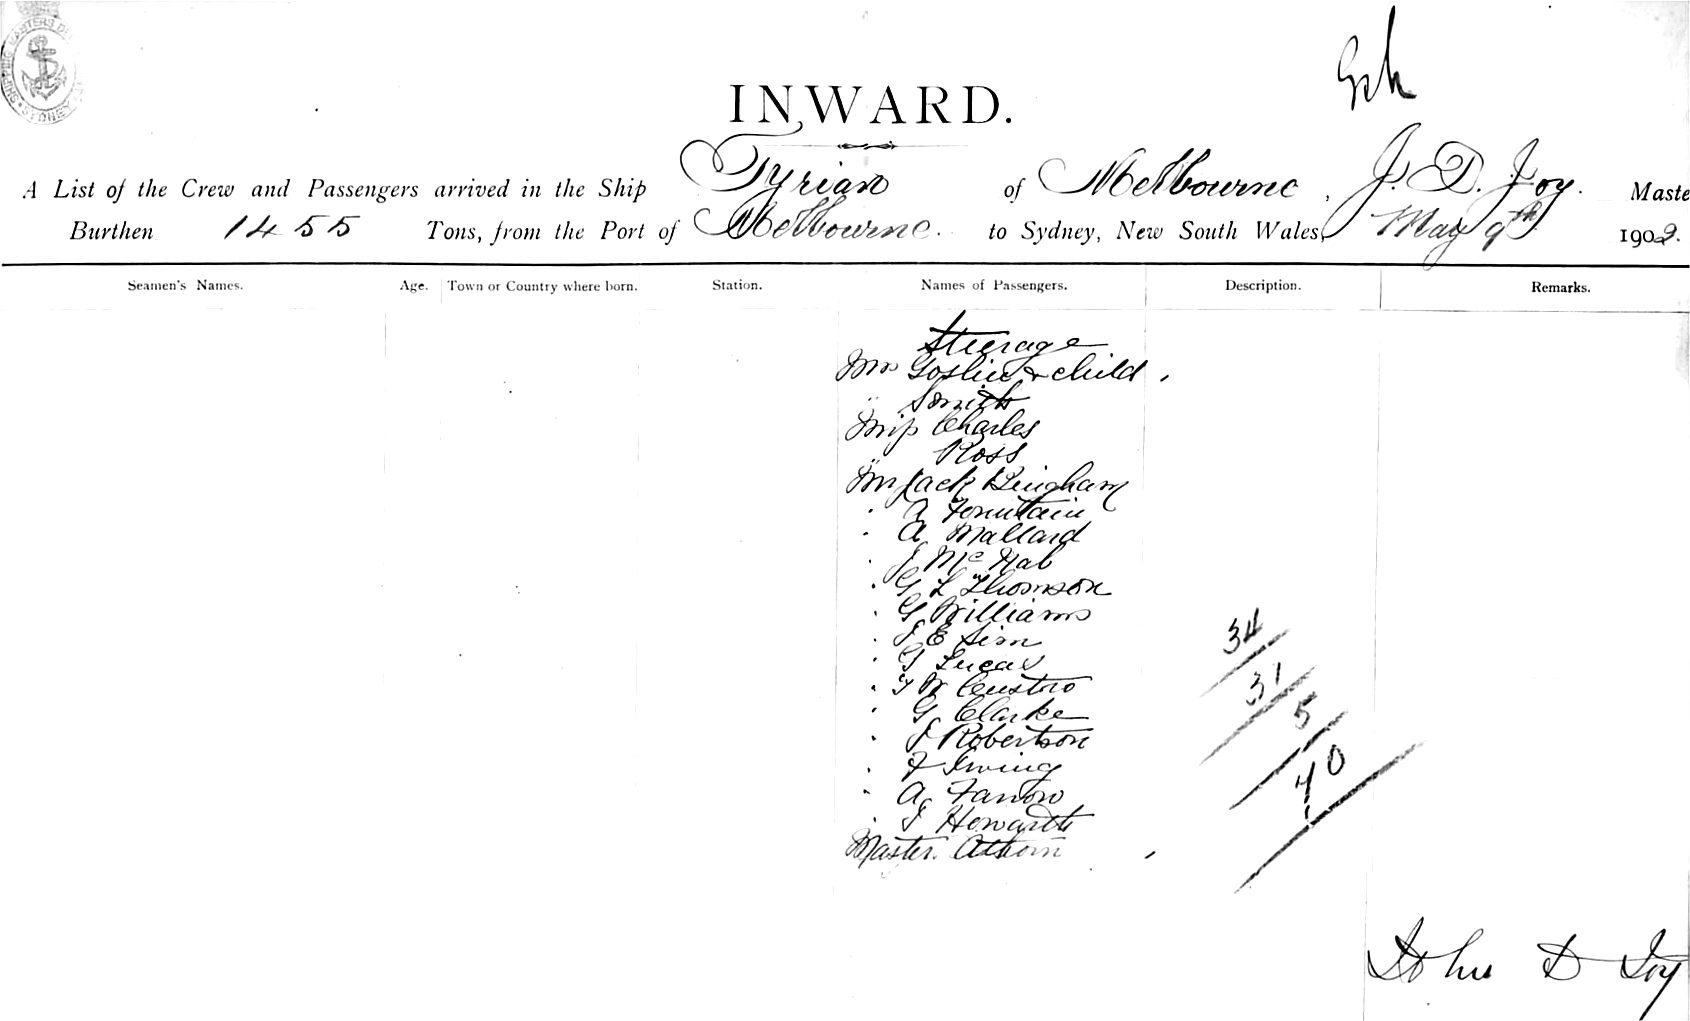 SHIPPING MASTERS
SYDNEY
INWARD.
A List of the Crew and Passengers arrived in the Ship Tyrian of Melbourne, J. D. Joy. Maste
Burthen 1455 Tons, from the Port of Melbourne. to Sydney, New South Wales, May 9th 1902.
Seamen's Names. Age. Town or Country where born. Station. Names of Passengers. Description. Remarks.
Steerage
Mrs Goslin & child
" Smith
Miss Charles
" Ross
Mr Jack Bingham
" A Fountain
" A Mallard
" J McNab
" G L Thomson
" G Williams
" J E Sim
" G Lucas
" T W
" G Clarke
" J Robertson
" J Irving
" A
" J Howarth
Master
34
31
5
40
John D Joy